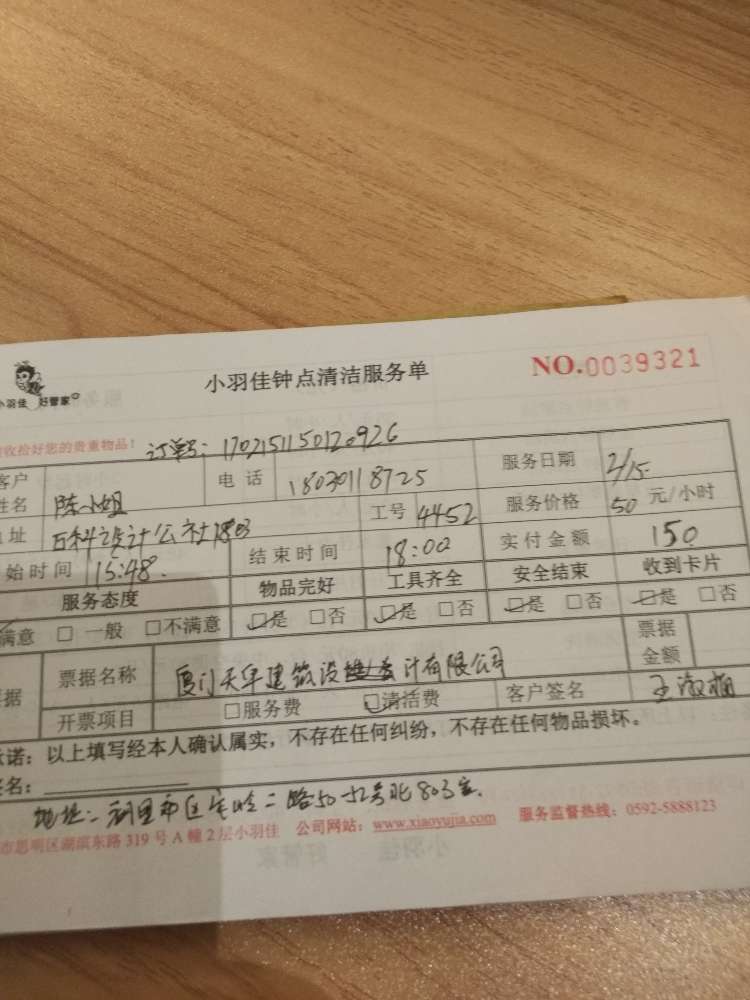 小羽佳钟点清洁服务单
NO.0039321
小羽佳 好管家
收拾好您的贵重物品!
订单号: 1702151150120926
客户姓名 陈小姐 电话 18030118725 服务日期 2/15
址 百科设计公社1803 工号 4452 服务价格 50 元/小时
始时间 15:48. 结束时间 18:00 实付金额 150
服务态度 物品完好 工具齐全 安全结束 收到卡片
满意 □ 一般 □不满意 □是 □否 □是 □否 □是 □否 □是 □否
据 票据名称 厦门天华建筑设计有限公司 票据金额
开票项目 □服务费 □清洁费 客户签名 王淑
诺:以上填写经本人确认属实,不存在任何纠纷,不存在任何物品损坏。
名:
地址: 二路50-52号北803室.
市思明区湖滨东路 319 号 A 幢 2 层小羽佳 公司网站:www.xiaoyujia.com 服务监督热线:0592-5888123